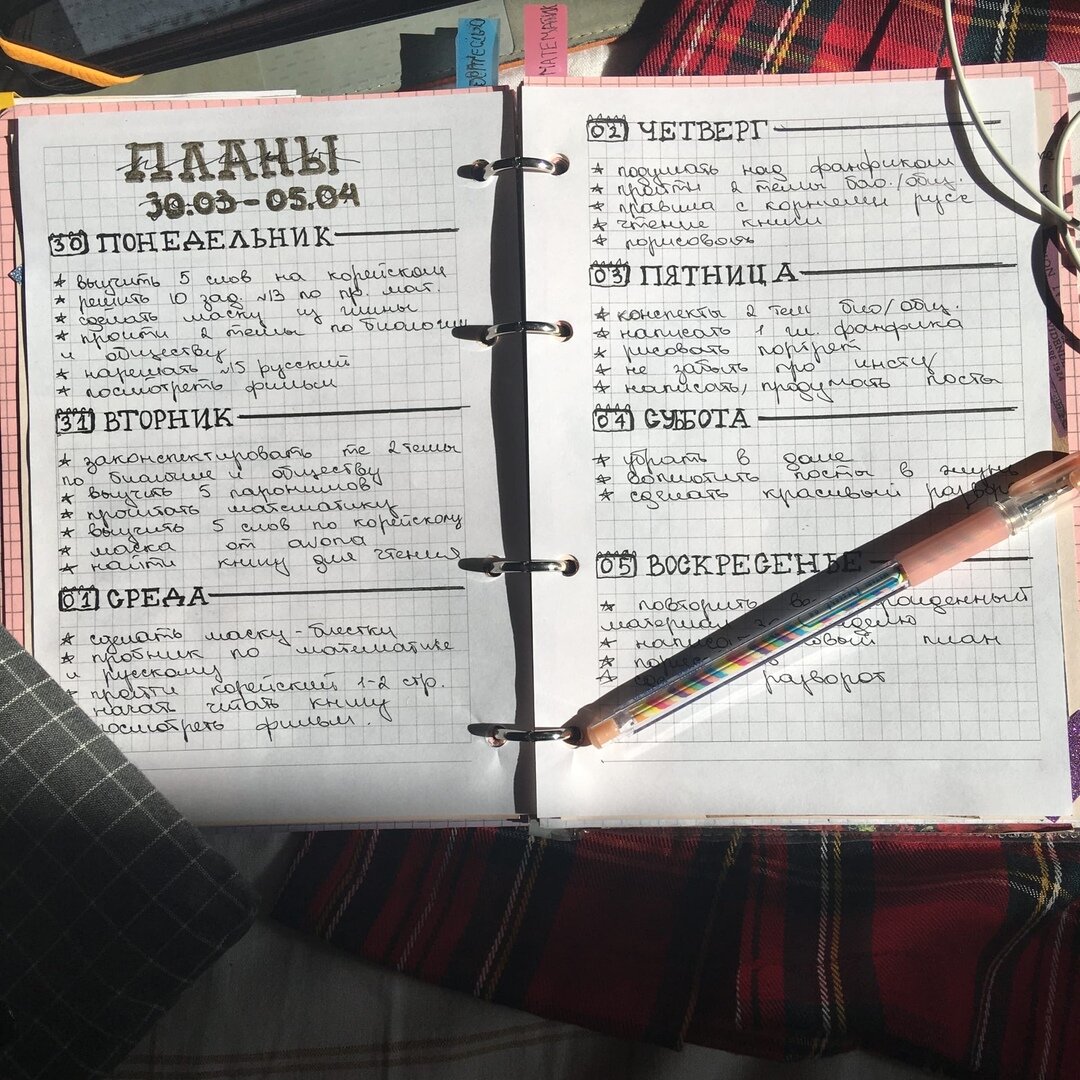 МАТЕМАТИК
ПЛАНЫ
30.03-05.04
30 ПОНЕДЕЛЬНИК
★ выучить 5 слов на корейском
★ решить 10 зад. №13 по пр. мат.
★ сделать маску из глины
★ пройти 2 темы по биологии
и обществу
★ нарешать №15 русский
★ посмотреть фильм
31 ВТОРНИК
★ законспектировать те 2 темы
по биологии и обществу
★ выучить 5 паронимов
★ прочитать математику
★ выучить 5 слов по корейскому
★ маска от avona
★ найти книгу для чтения
01 СРЕДА
★ сделать маску-блестки
★ пробник по математике
и русскому
★ пройти корейский 1-2 стр.
начать читать книгу
посмотреть фильм.
02 ЧЕТВЕРГ
★ подумать над фанфиком
★ пройти 2 темы био./общ.
★ правила с корнями русс
★ чтение книги
★ порисовать
03 ПЯТНИЦА
★ конспекты 2 тем био/общ.
★ написать 1 гл. фанфика
★ рисовать портрет
★ не забыть про инсту
★ написать, продумать посты
04 СУББОТА
★ убрать в доме
★ воплотить посты в жизнь
★ сделать красивый
05 ВОСКРЕСЕНЬЕ
★ повторить пройденный
материал неделю
★ план
★
★ разворот